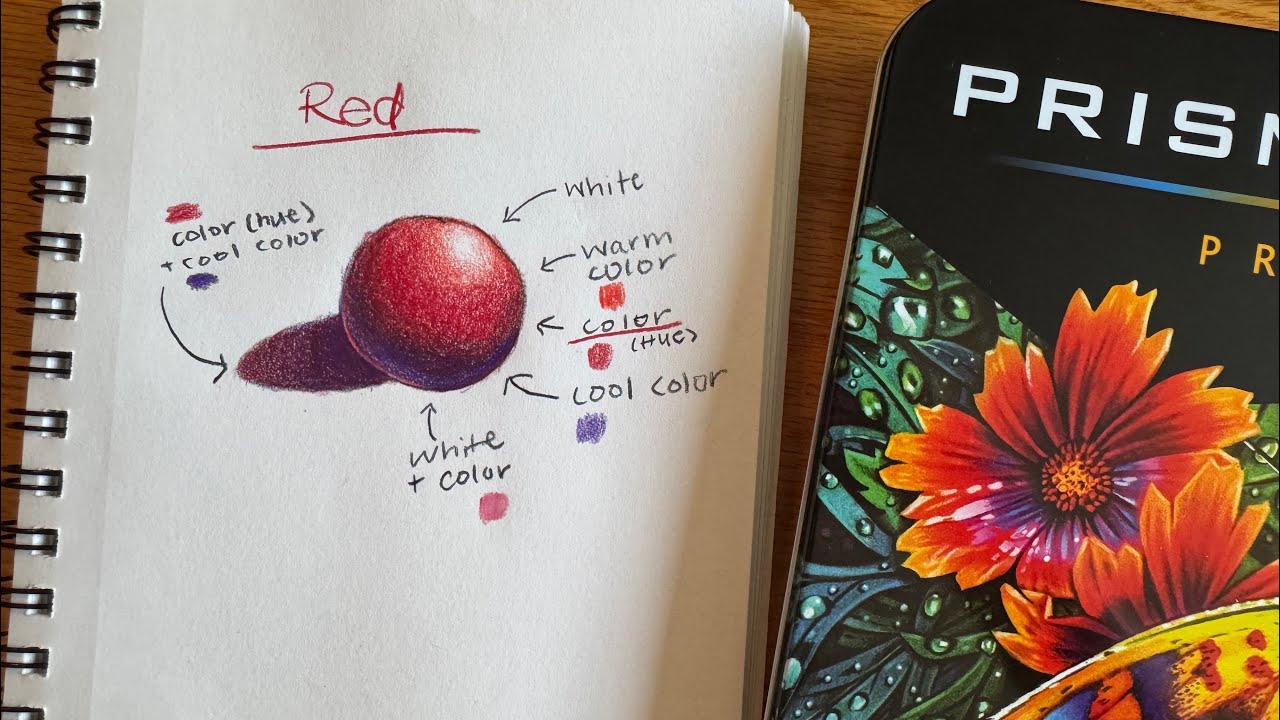 Red
white
color (hue)
+ cool color
warm
color
color
(Hue)
cool color
white
+ color
PRISM
PR